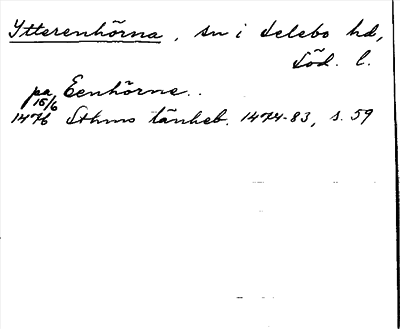 Ytterenhörna, sn i Selebo hd,
Söd. l.
pa Eenhörne..
15/6
1476 Sthms tänkeb. 1474-83, s. 59